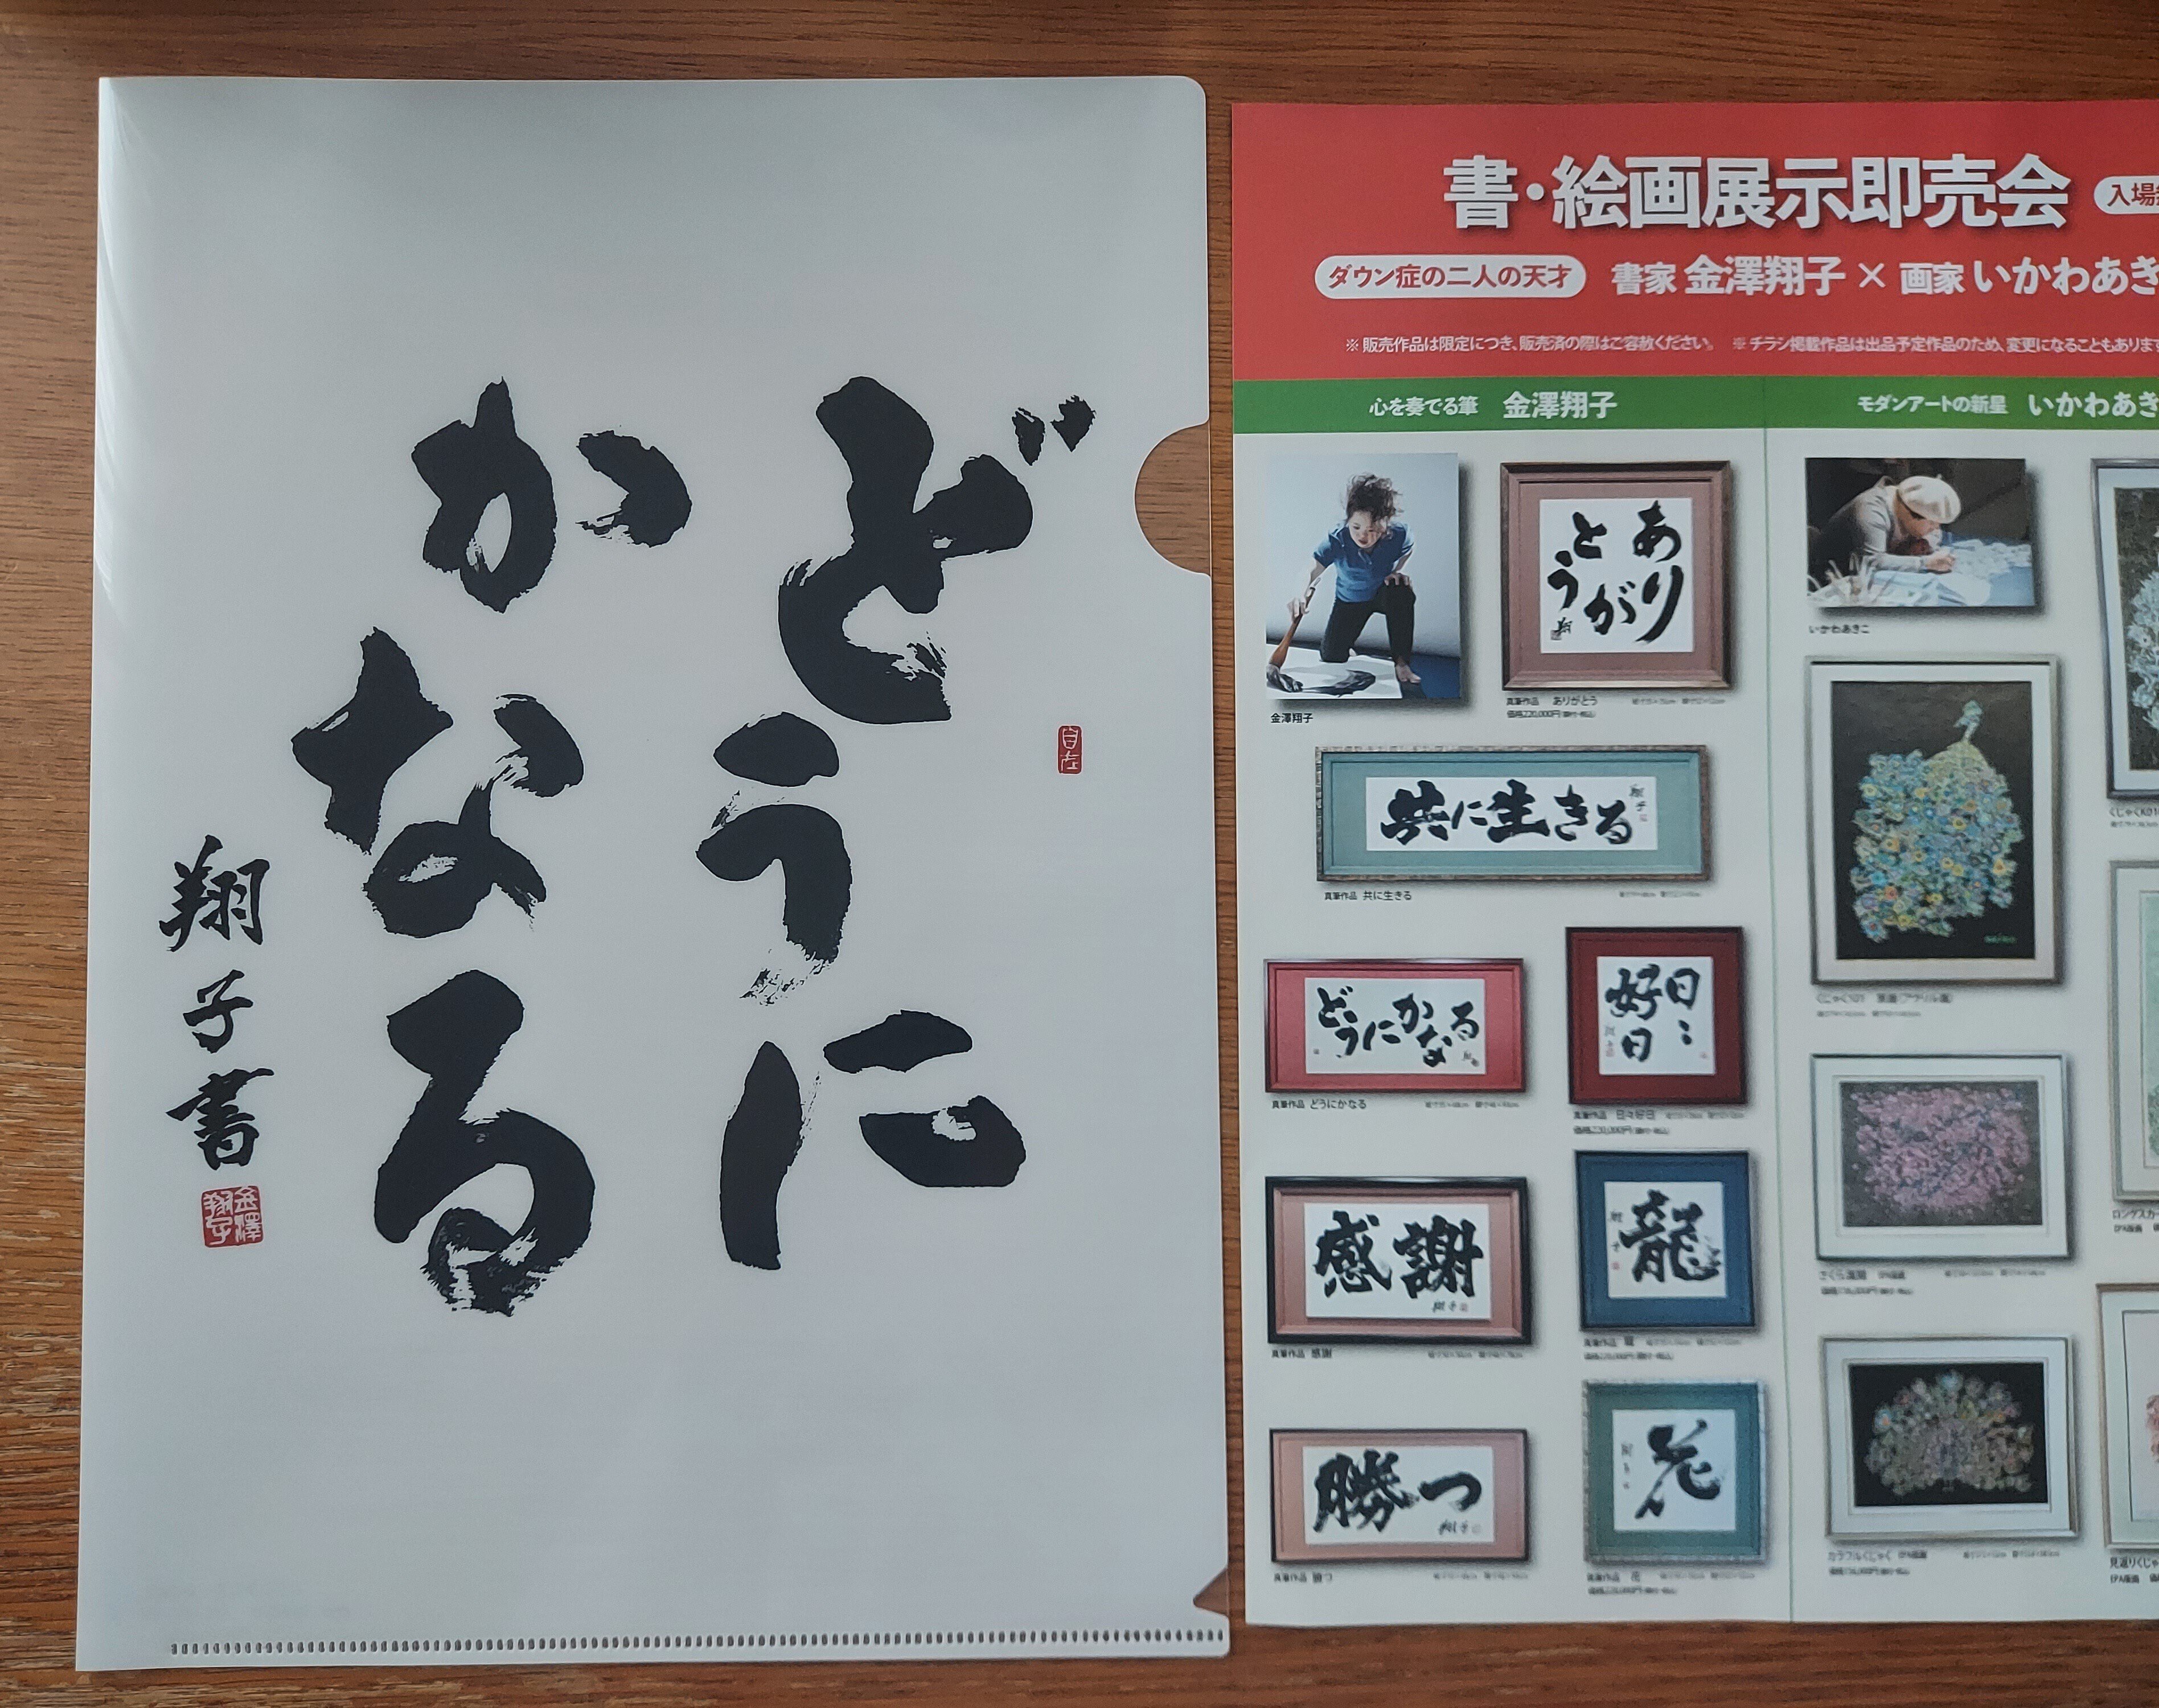 どうに
かなる
翔子書
自在
金澤翔子
書・絵画展示即売会
入場
ダウン症の二人の天才 書家 金澤翔子 × 画家 いかわあき
※販売作品は限定につき、販売済の際はご容赦ください。 ※チラシ掲載作品は出品予定作品のため、変更になることもあります
心を奏でる筆 金澤翔子
モダンアートの新星 いかわあき
金澤翔子
ありがとう
真筆作品 ありがとう
共に生きる
翔子
真筆作品 共に生きる
どうにかなる
真筆作品 どうにかなる
日々好日
真筆作品 日々好日
感謝
翔子
真筆作品 感謝
龍
真筆作品 龍
勝つ
翔子
真筆作品 勝つ
花
真筆作品 花
いかわあきこ
くじゃく101 原画(アクリル画)
さくら満開
カラフルくじゃく
ロングスカー
見返りくじゃ